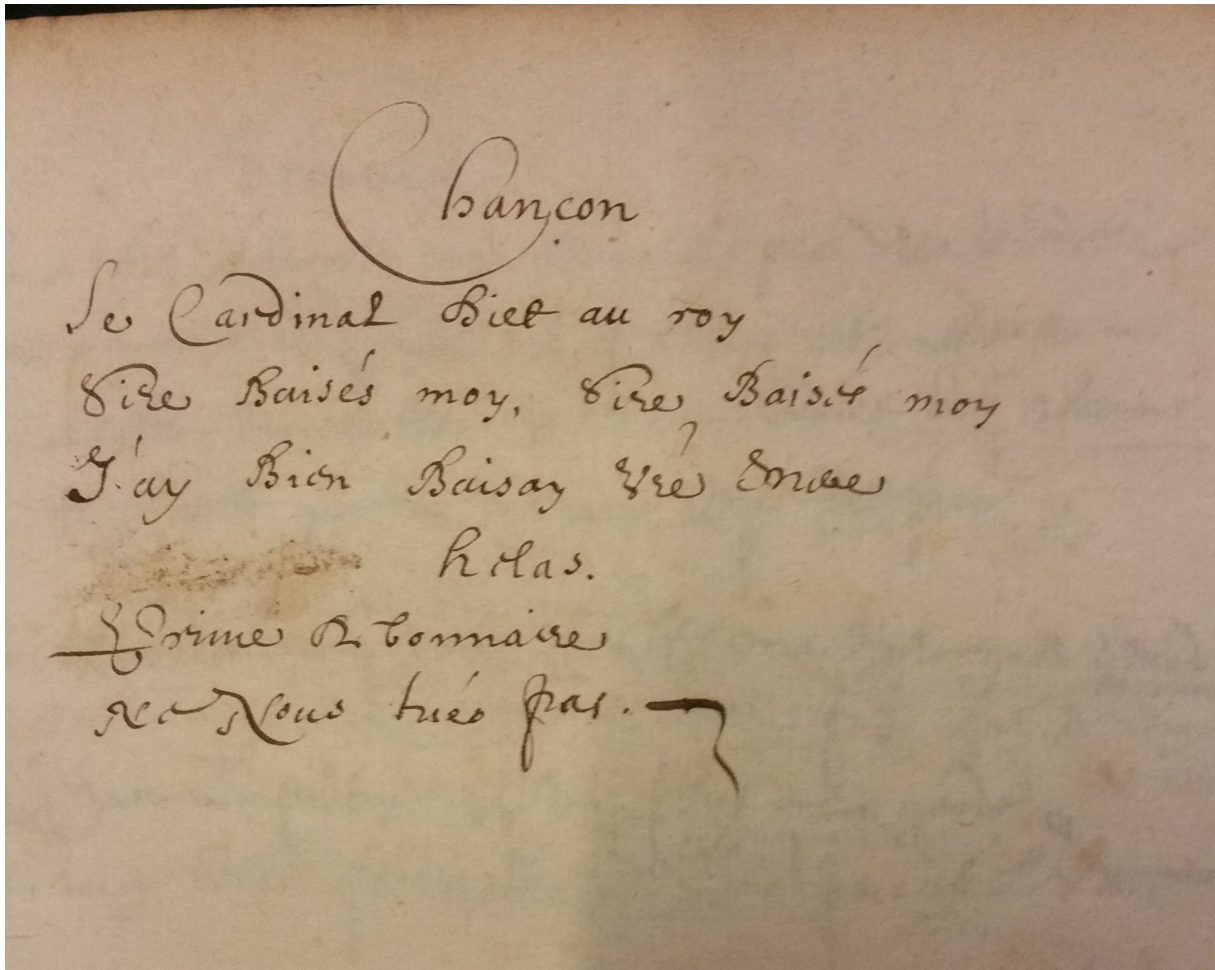 Chançon
Le Cardinal Dict au roy
Sire Baisés moy, Sire Baisés moy
J'ay Bien Baisay Vre
helas.
Prince De bonnaire
Ne Nous tués pas.